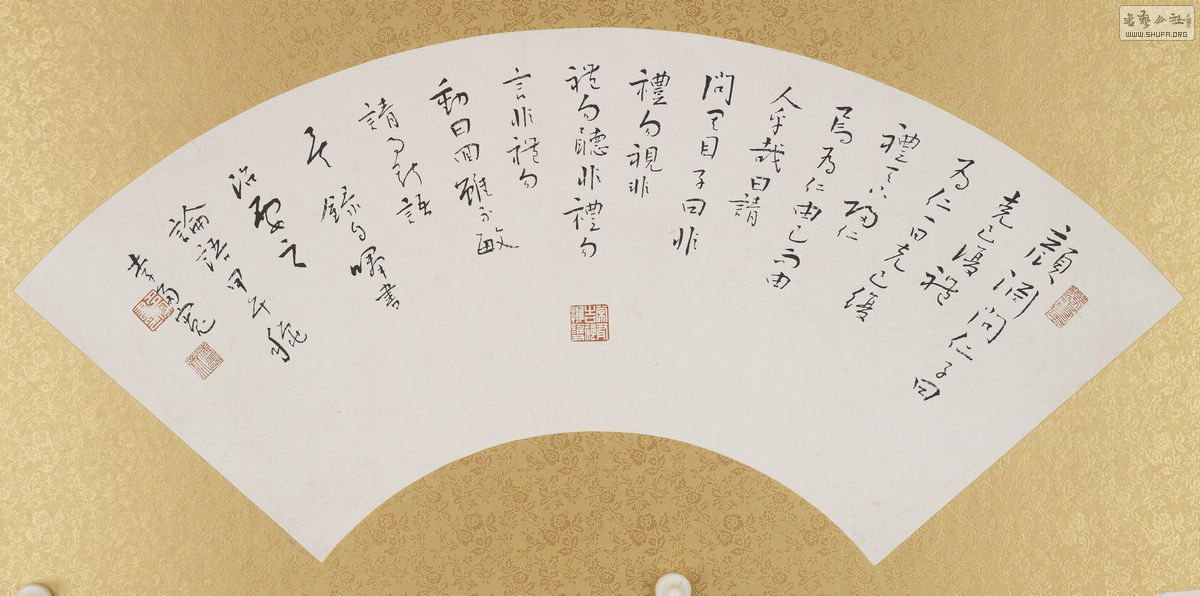 顏淵問仁子曰
克己復禮
為仁一日克己復
禮天下歸仁
焉為仁由己而由
人乎哉曰請
問其目子曰非
禮勿視非
禮勿聽非禮勿
言非禮勿
動曰回雖不敏
請事斯語
矣錄自羣書
治要之
論語甲午秋
書藝公社
WWW.SHUFA.ORG